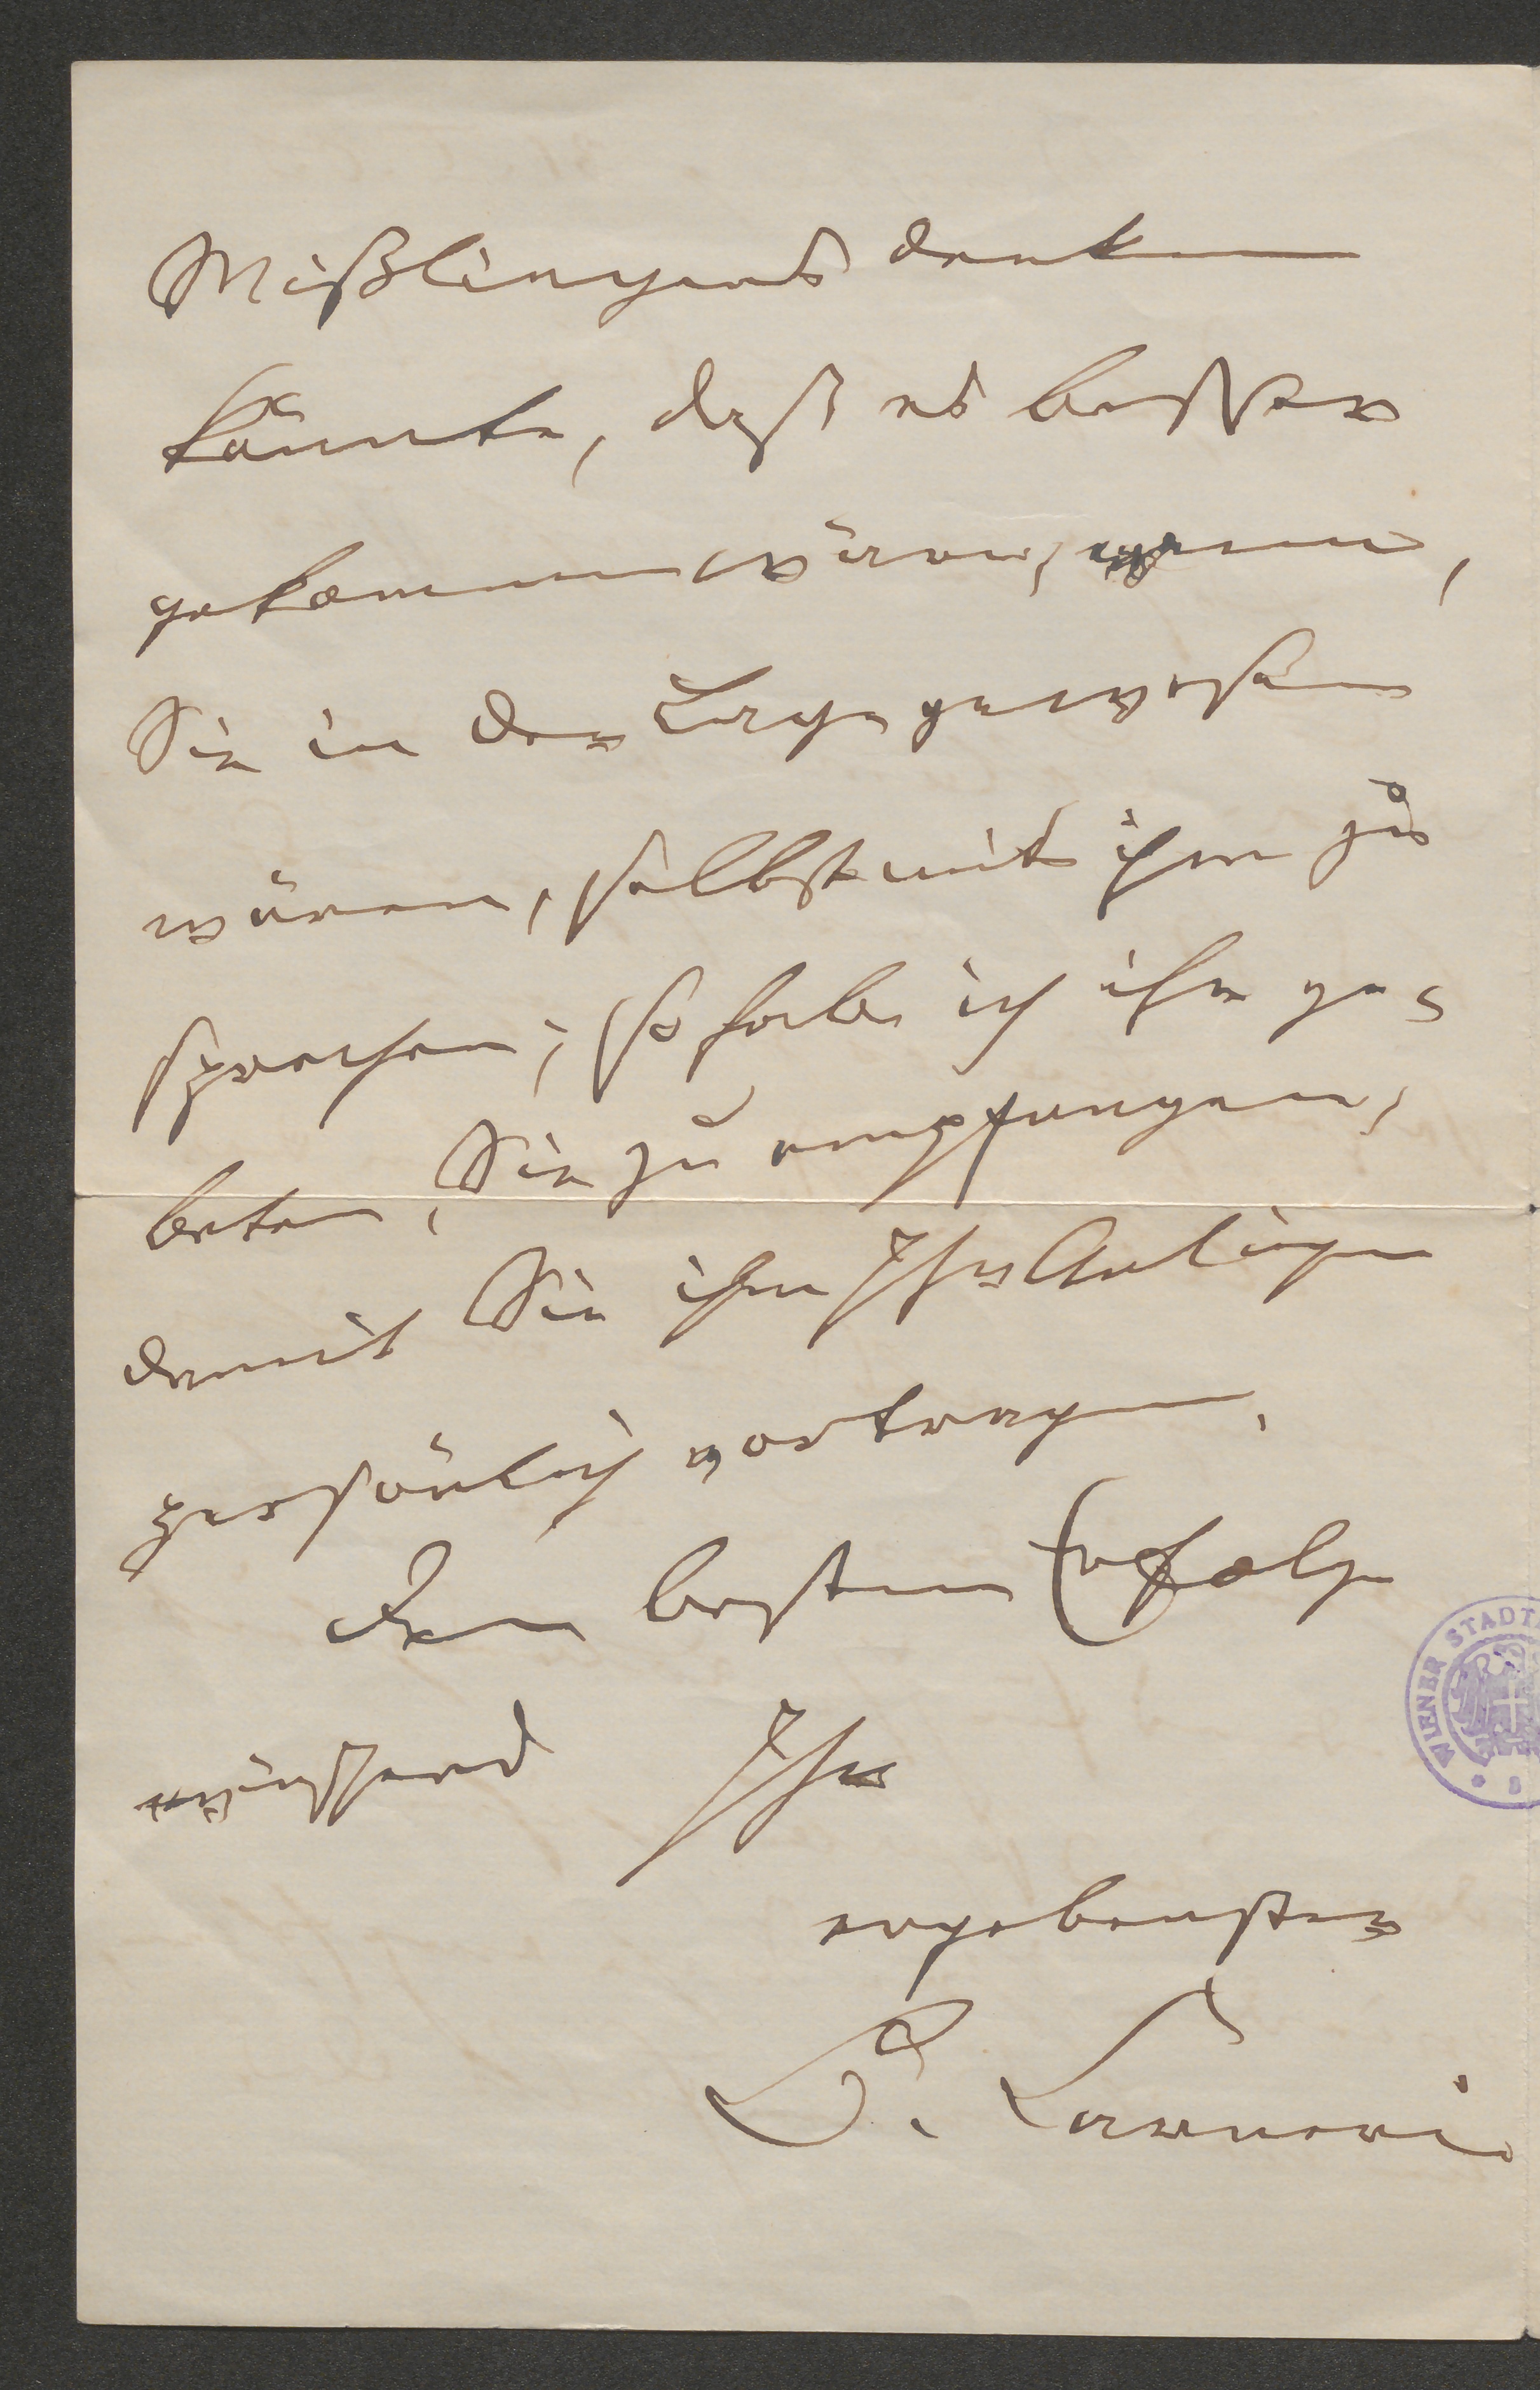 Mißlingens denken
könnte, daß es besser
gekommen wäre, wenn
Sie in der Lage gewesen
wären, selbst mit ihm zu
sprechen; so habe ich ihn ge-
beten, Sie zu empfangen,
damit Sie ihm Ihr Anliegen
persönlich vortragen.
Den besten Erfolg
wünschend Ihr
ergebenster
B. Carneri
WIENER STADT